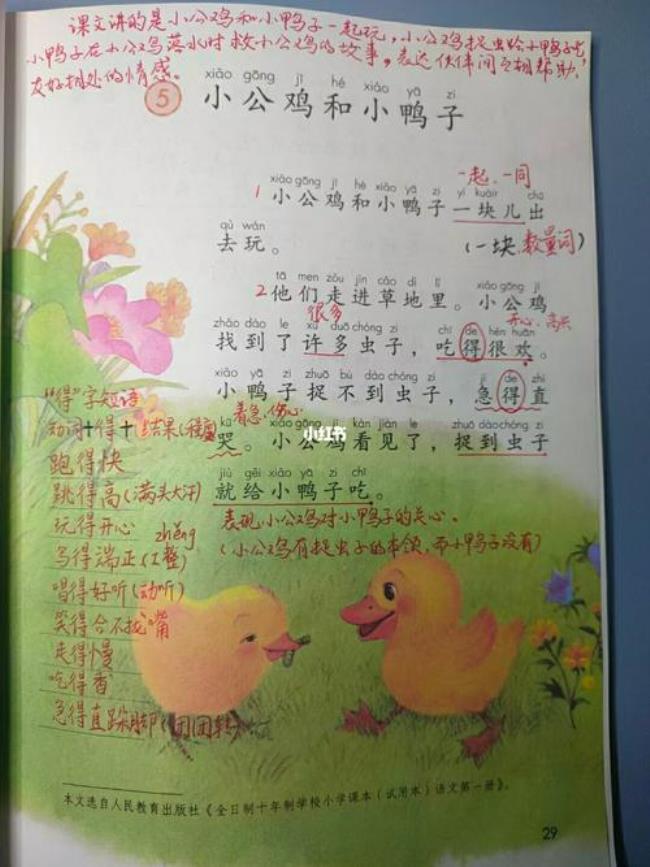 课文讲的是小公鸡和小鸭子一起玩，小公鸡捉虫给小鸭子吃
小鸭子在小公鸡落水时救小公鸡的故事，表达伙伴间互相帮助，
友好相处的情感。
xiǎo gōng jī hé xiǎo yā zi
5 小公鸡和小鸭子
一起、一同
xiǎo gōng jī hé xiǎo yā zi yí kuàir chū
1 小公鸡和小鸭子一块儿出
qù wán
去玩。
(一块 数量词)
tā men zǒu jìn cǎo dì lǐ xiǎo gōng jī
2 他们走进草地里。小公鸡
很多 开心、高兴
zhǎo dào le xǔ duō chóng zi chī de hěn huān
找到了许多虫子，吃得很欢。
xiǎo yā zi zhuō bú dào chóng zi jí de zhí
小鸭子捉不到虫子，急得直
着急、伤心
kū xiǎo gōng jī kàn jiàn le zhuō dào chóng zi
哭。小公鸡看见了，捉到虫子
jiù gěi xiǎo yā zi chī
就给小鸭子吃。
表现小公鸡对小鸭子的关心。
(小公鸡有捉虫子的本领，而小鸭子没有)
“得”字短语
动词+得+结果(程度)
跑得快
跳得高(满头大汗)
玩得开心
zhěng
写得端正(工整)
唱得好听(动听)
笑得合不拢嘴
走得慢
吃得香
急得直跺脚(团团转)
小红书
本文选自人民教育出版社《全日制十年制学校小学课本（试用本）语文第一册》。
29